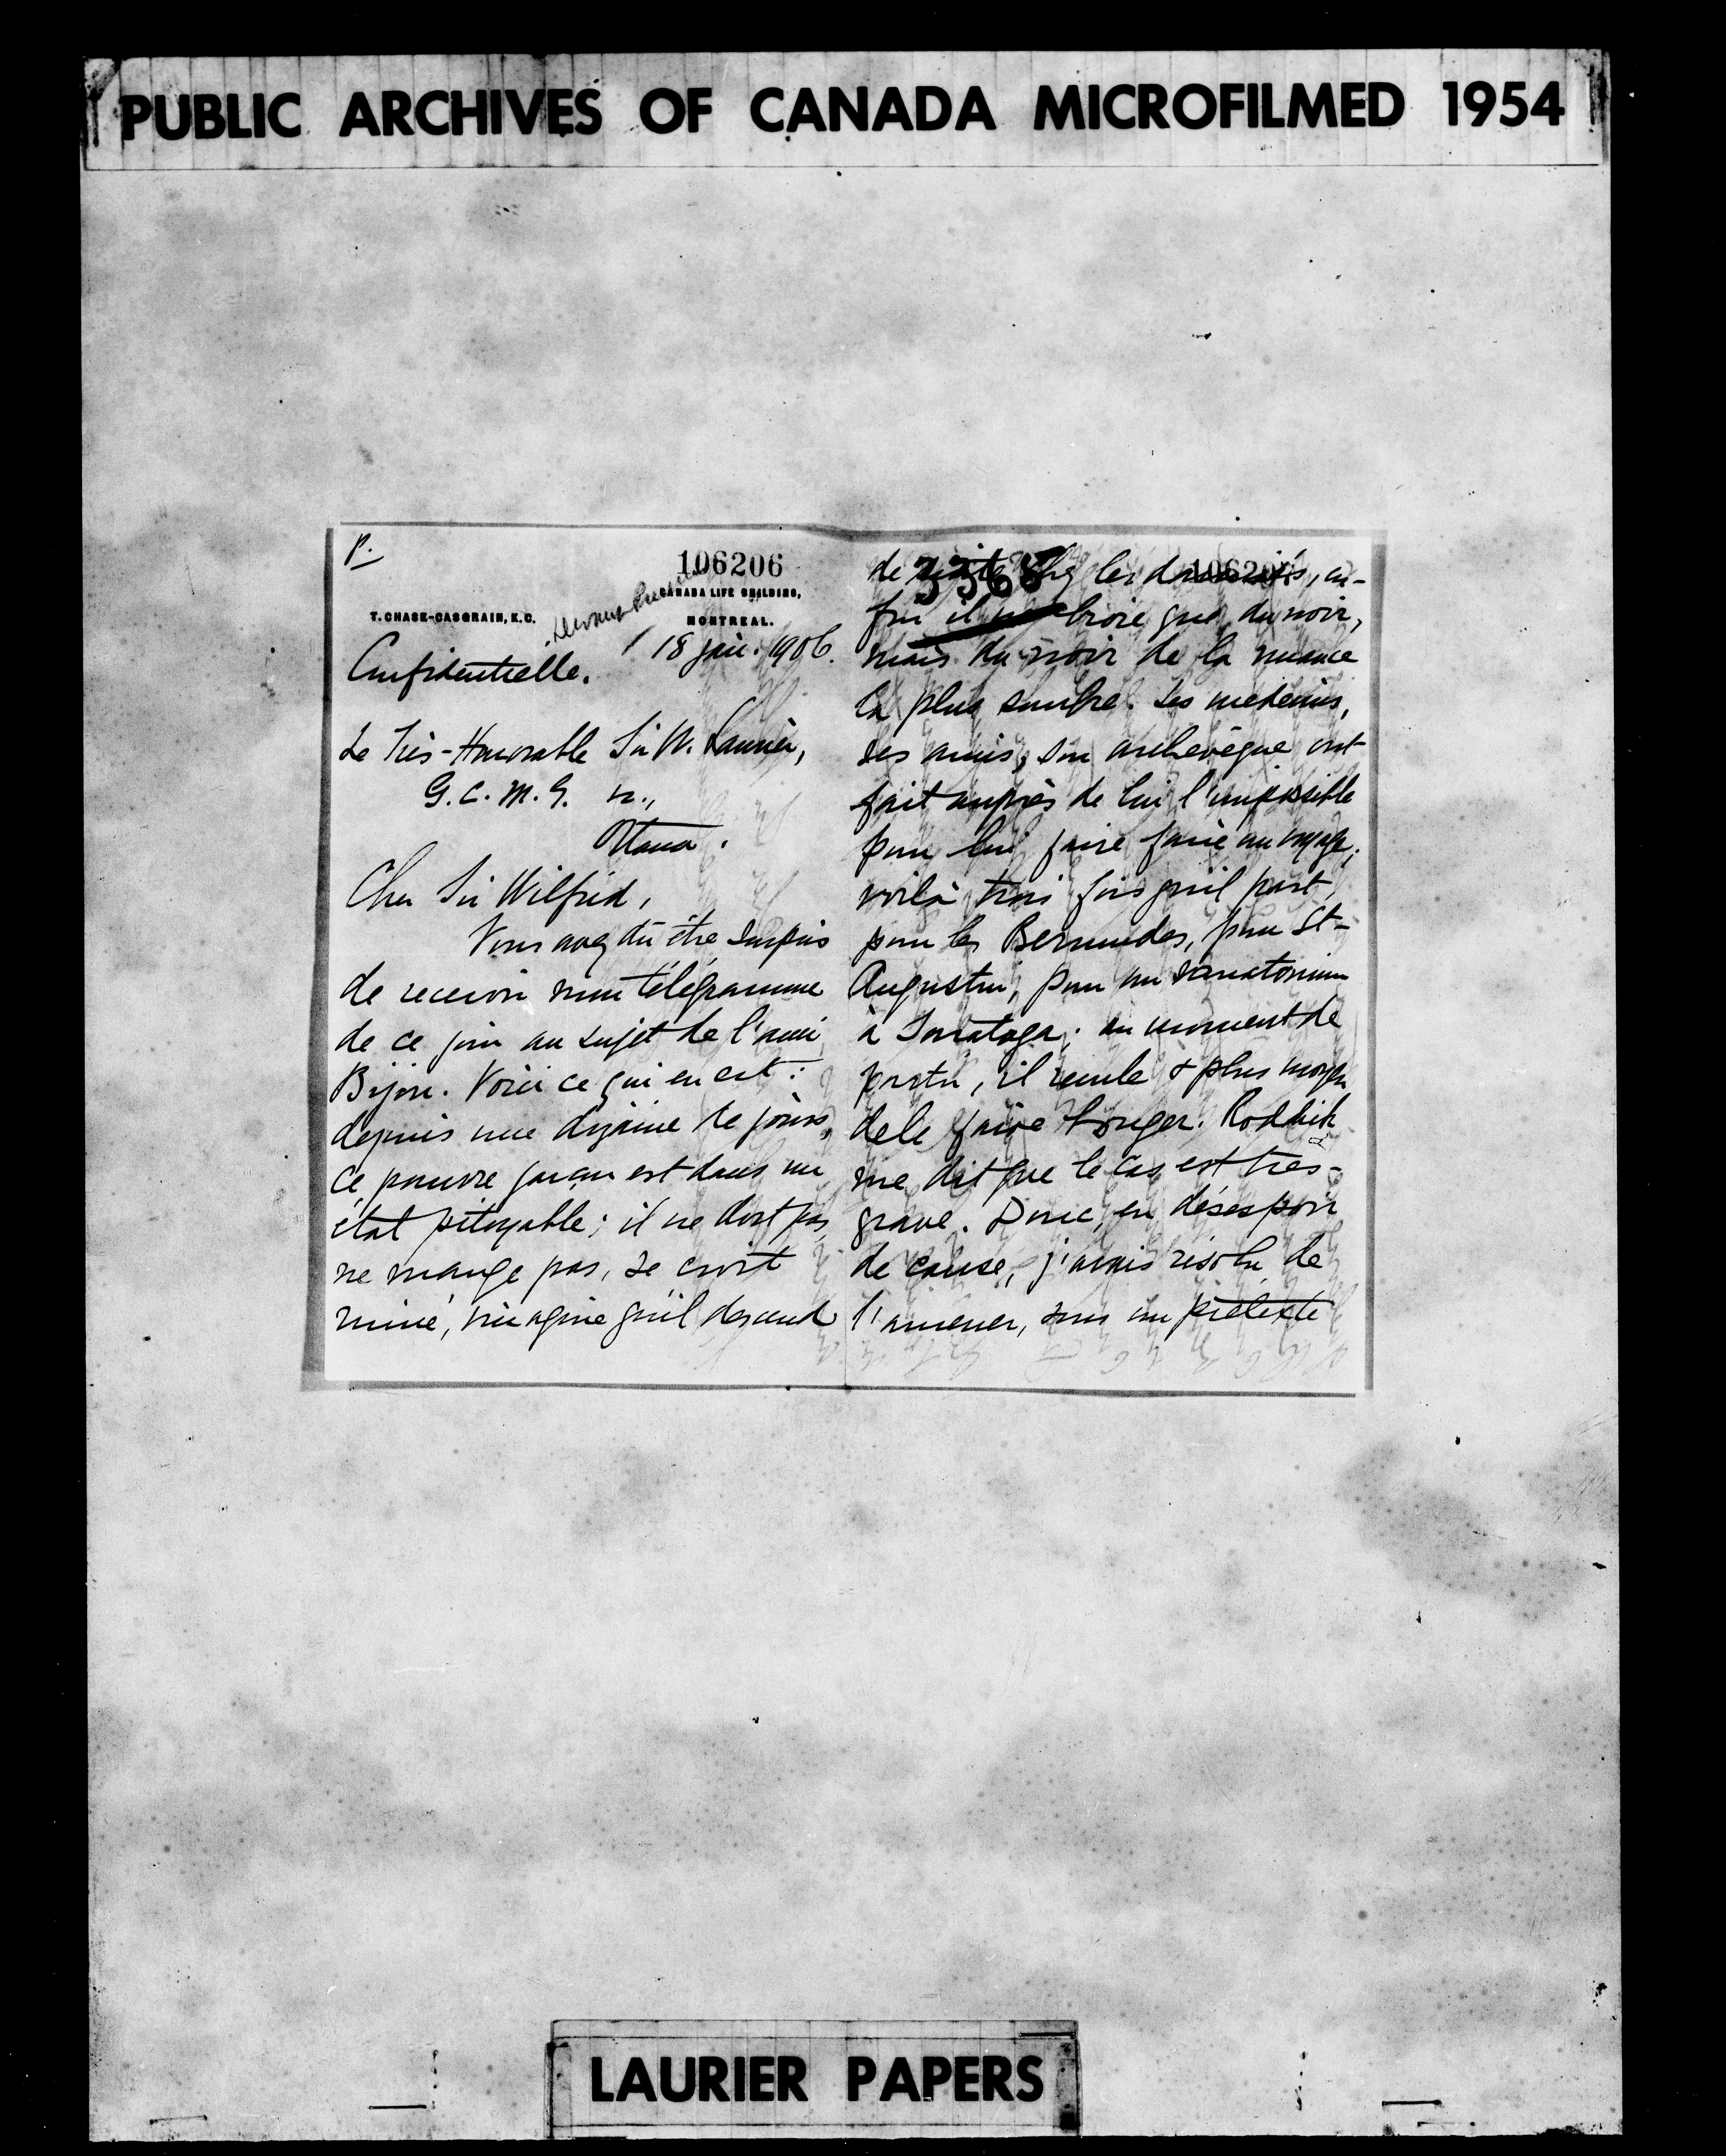 PUBLIC ARCHIVES OF CANADA MICROFILMED 1954
P.
106206
CANADA LIFE BUILDING,
T. CHASE-CASGRAIN, K.C.
MONTREAL.
18 jan. 1906.
Confidentielle.
Le Très-Honorable Sir W. Laurier,
G. C. M. G. &.,
Ottawa.
Cher Sir Wilfrid,
Vous avez dû être surpris
de recevoir mon télégramme
de ce jour au sujet de l'ami
Bijou. Voici ce qui en est:
depuis une dizaine de jours,
ce pauvre garçon est dans un
état pitoyable; il ne dort pas,
ne mange pas, se croit
ruiné, imagine qu'il descend
de 3368 les, en-
fin il broie que du noir,
mais du noir de la nuance
la plus sombre. Ses médecins,
ses amis, son archevêque ont
fait auprès de lui l'impossible
pour lui faire faire un voyage;
voilà trois fois qu'il part,
pour les Bermudes, pour St-
Augustin, pour un sanatorium
à Saratoga; au moment de
partir, il recule & plus moyen
de le faire bouger. Roddick
me dit que le cas est très-
grave. Donc, en désespoir
de cause, j'avais résolu de
l'amener, sous un prétexte
LAURIER PAPERS